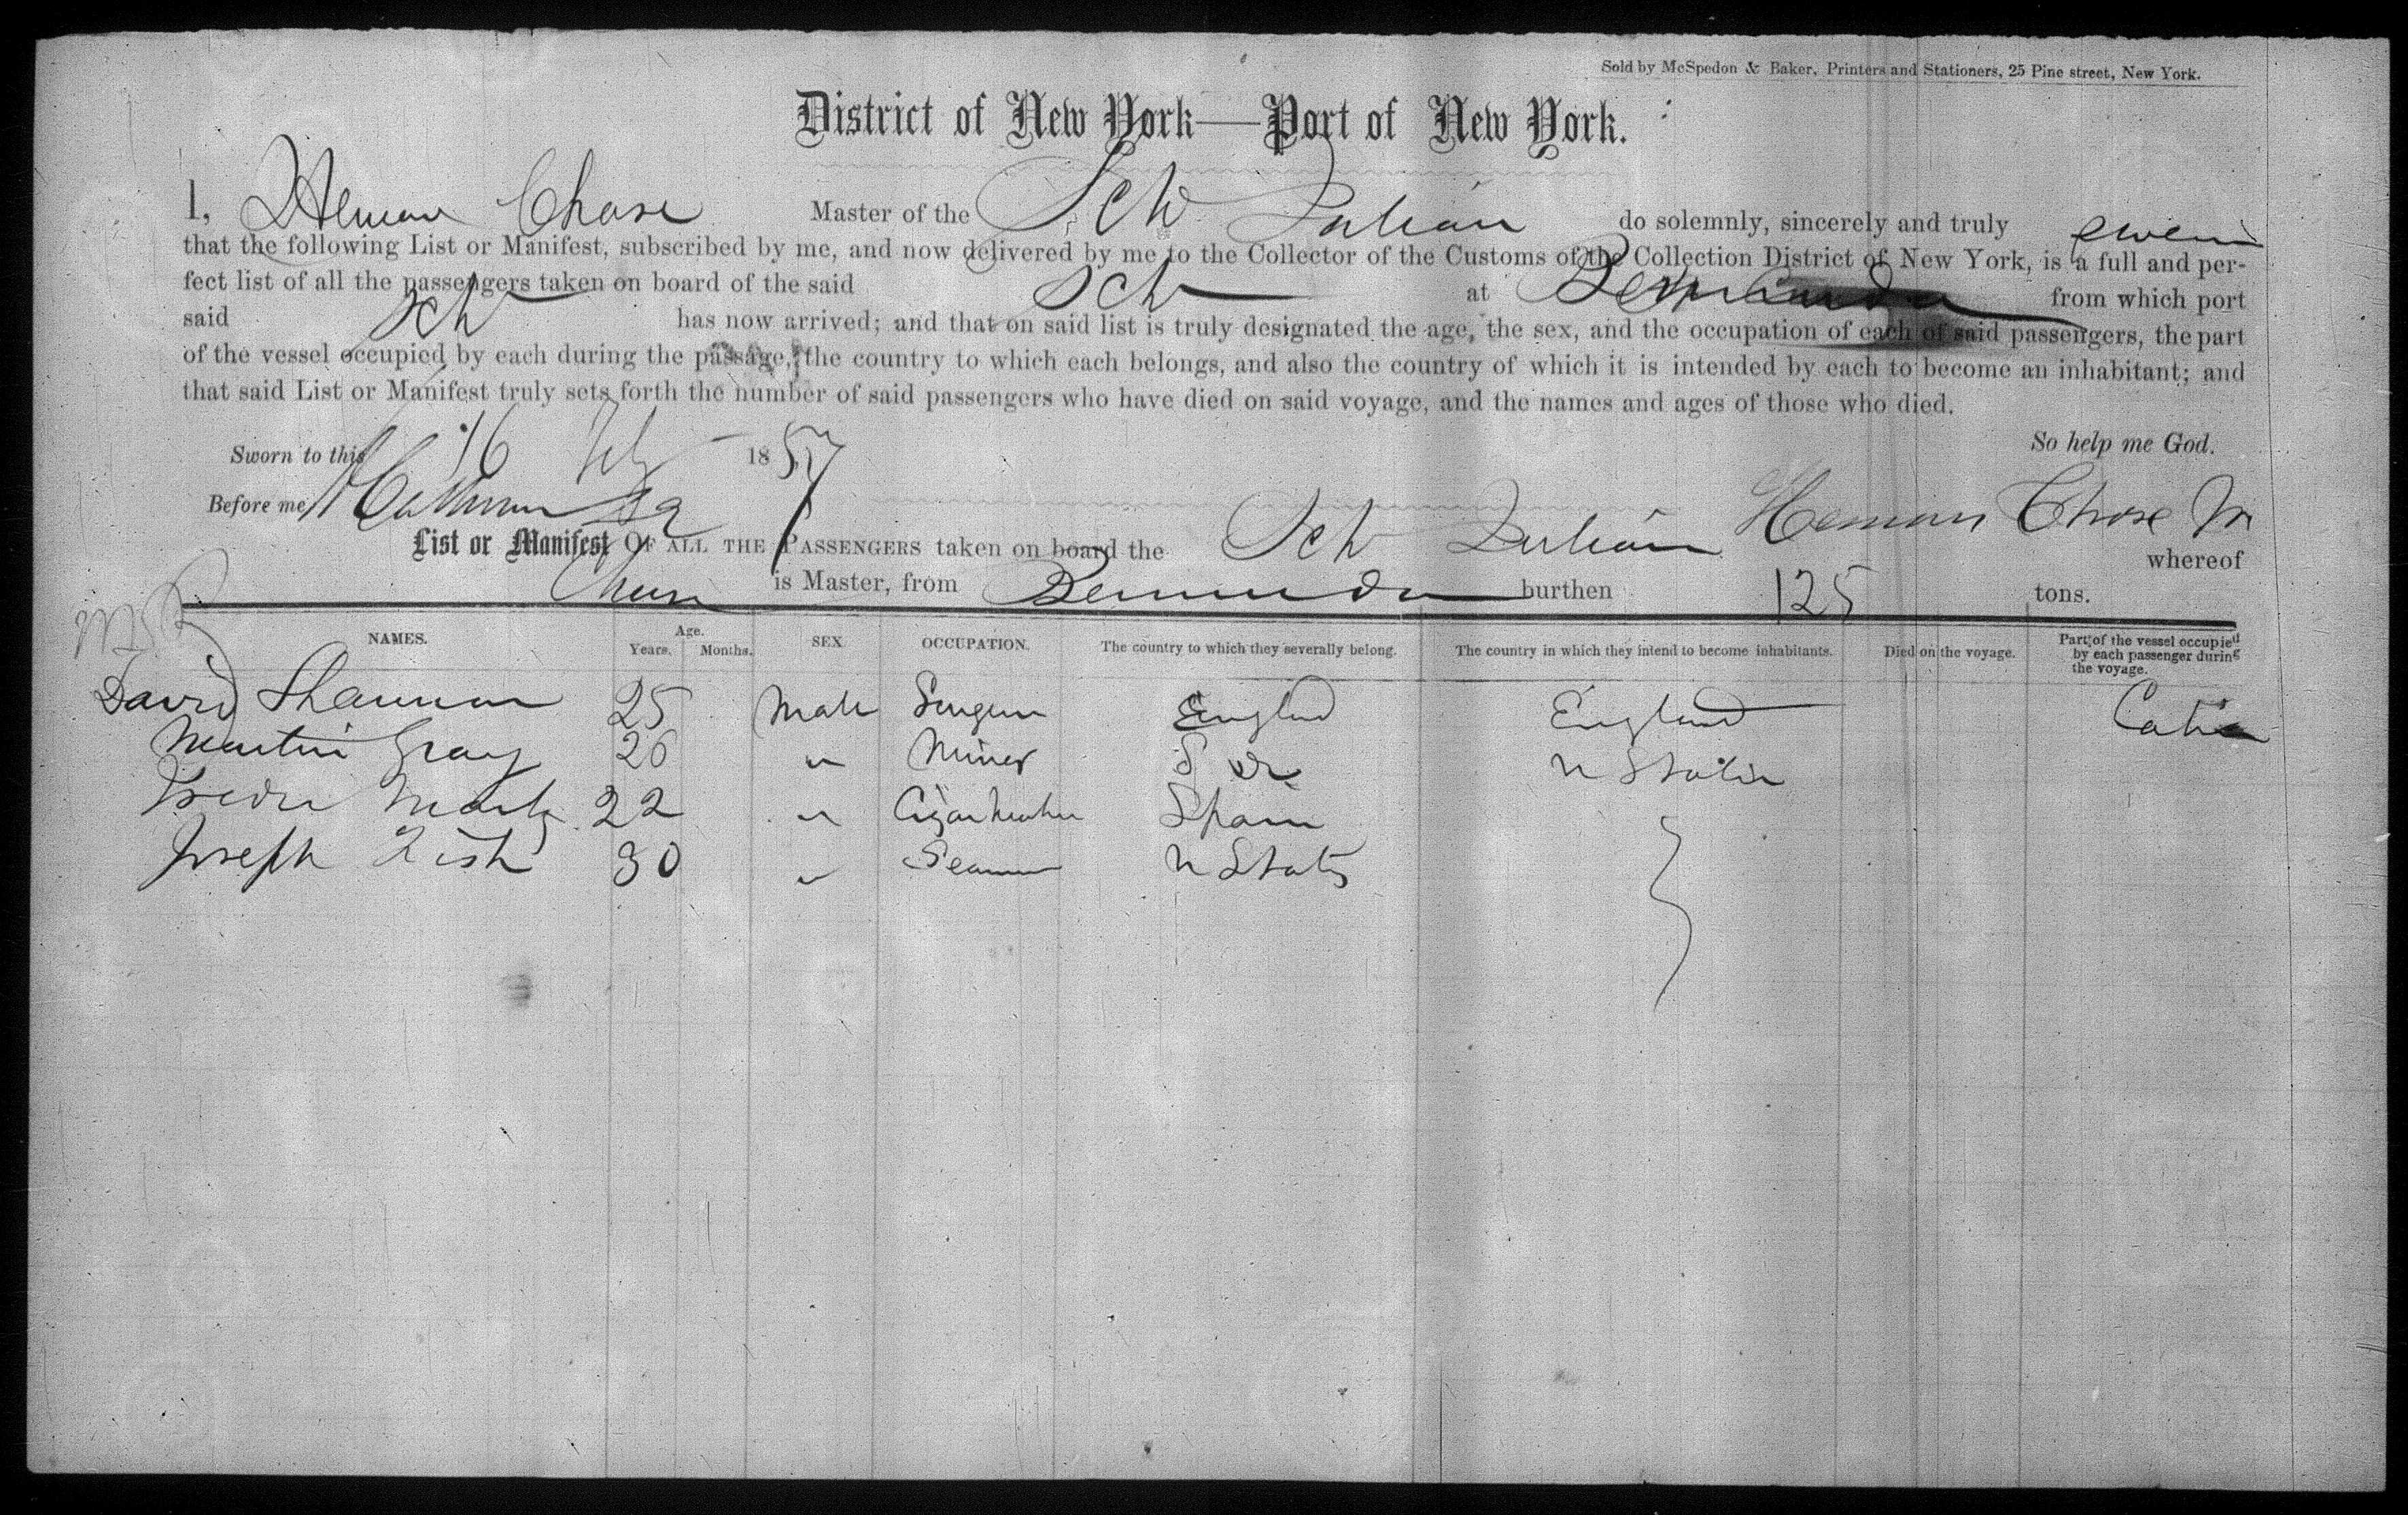 Sold by McSpedon & Baker, Printers and Stationers, 25 Pine street, New York.
District of New York—Port of New York.
I, Heman Chase Master of the Sch Julian do solemnly, sincerely and truly swear
that the following List or Manifest, subscribed by me, and now delivered by me to the Collector of the Customs of the Collection District of New York, is a full and per-
fect list of all the passengers taken on board of the said Sch at Bermuda from which port
said Sch has now arrived; and that on said list is truly designated the age, the sex, and the occupation of each of said passengers, the part
of the vessel occupied by each during the passage, the country to which each belongs, and also the country of which it is intended by each to become an inhabitant; and
that said List or Manifest truly sets forth the number of said passengers who have died on said voyage, and the names and ages of those who died.
So help me God.
Sworn to this 16 July 1857
Before me Heman Chase
List or Manifest OF ALL THE PASSENGERS taken on board the Sch Julian whereof
Chase is Master, from Bermuda burthen 125 tons.
NAMES. Age. Years. Months. SEX OCCUPATION. The country to which they severally belong. The country in which they intend to become inhabitants. Died on the voyage. Part of the vessel occupied by each passenger during the voyage.
David Shannon 25 Male Surgeon England England Cabin
Martin Gray 26 " Miner U States
22 " Cigar Maker Spain
Joseph Fish 30 " Seaman U States